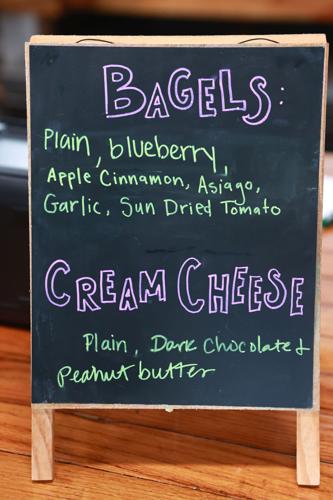 BAGELS:
Plain, blueberry,
Apple Cinnamon, Asiago,
Garlic, Sun Dried Tomato
CREAM CHEESE
Plain, Dark Chocolate &
Peanut butter